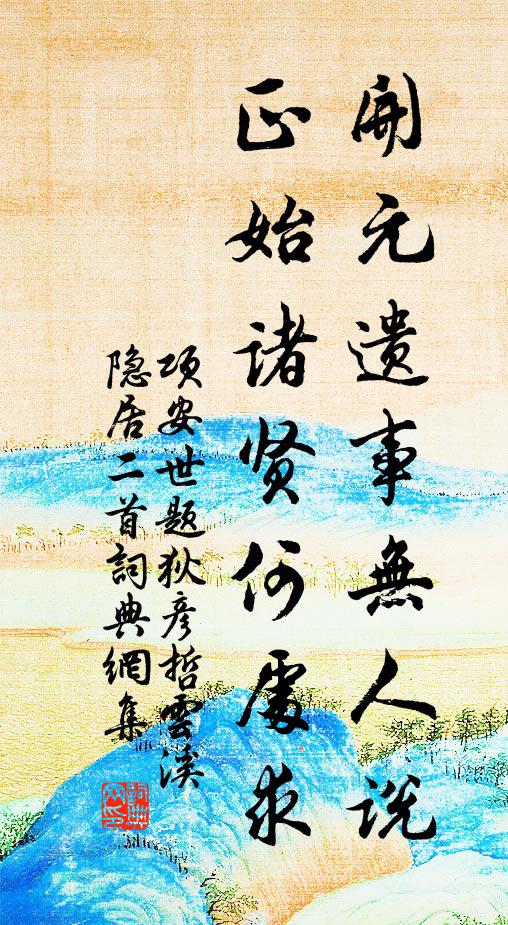 開元遺事無人説
正始诸贤何處求
項安世题狄彦哲雲溪
隐居二首詞典網集